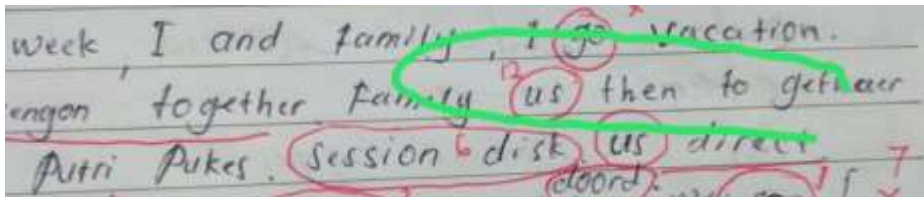 week, I and family, I go vacation. x
engon together family 12 us then to gethaer
Putri Pukes. session 6 disk. us direct. 7
doord.